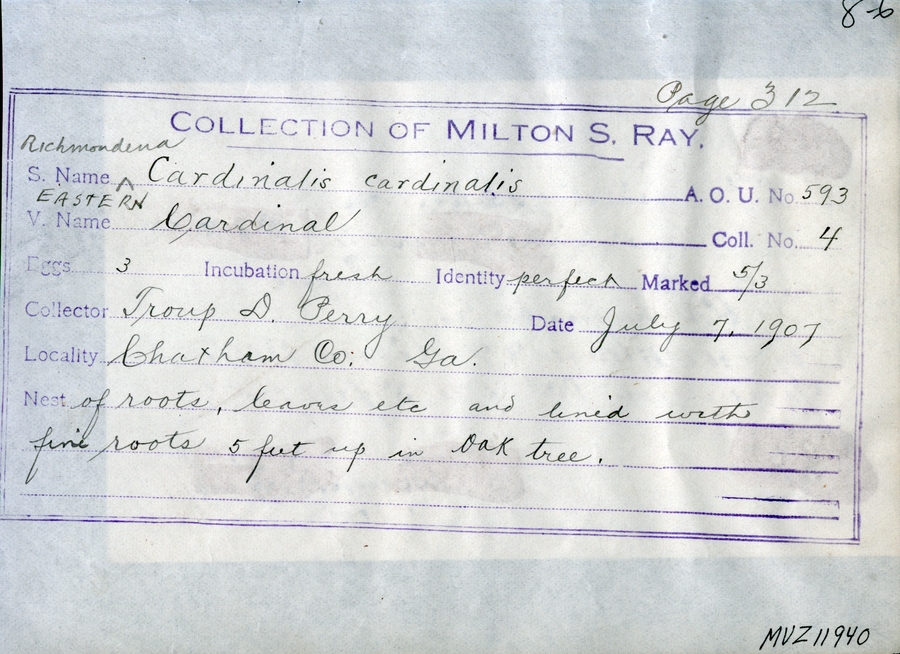 8-6
Page 312
COLLECTION OF MILTON S. RAY.
Richmondena
S. Name ^ Cardinalis cardinalis A. O. U. No. 593
EASTERN
V. Name Cardinal Coll. No. 4
Eggs 3 Incubation fresh Identity perfect Marked 5/3
Collector Troup D. Perry Date July 7, 1907
Locality Chatham Co: Ga.
Nest of roots, leaves etc and lined with
fine roots 5 feet up in oak tree.
MVZ11940